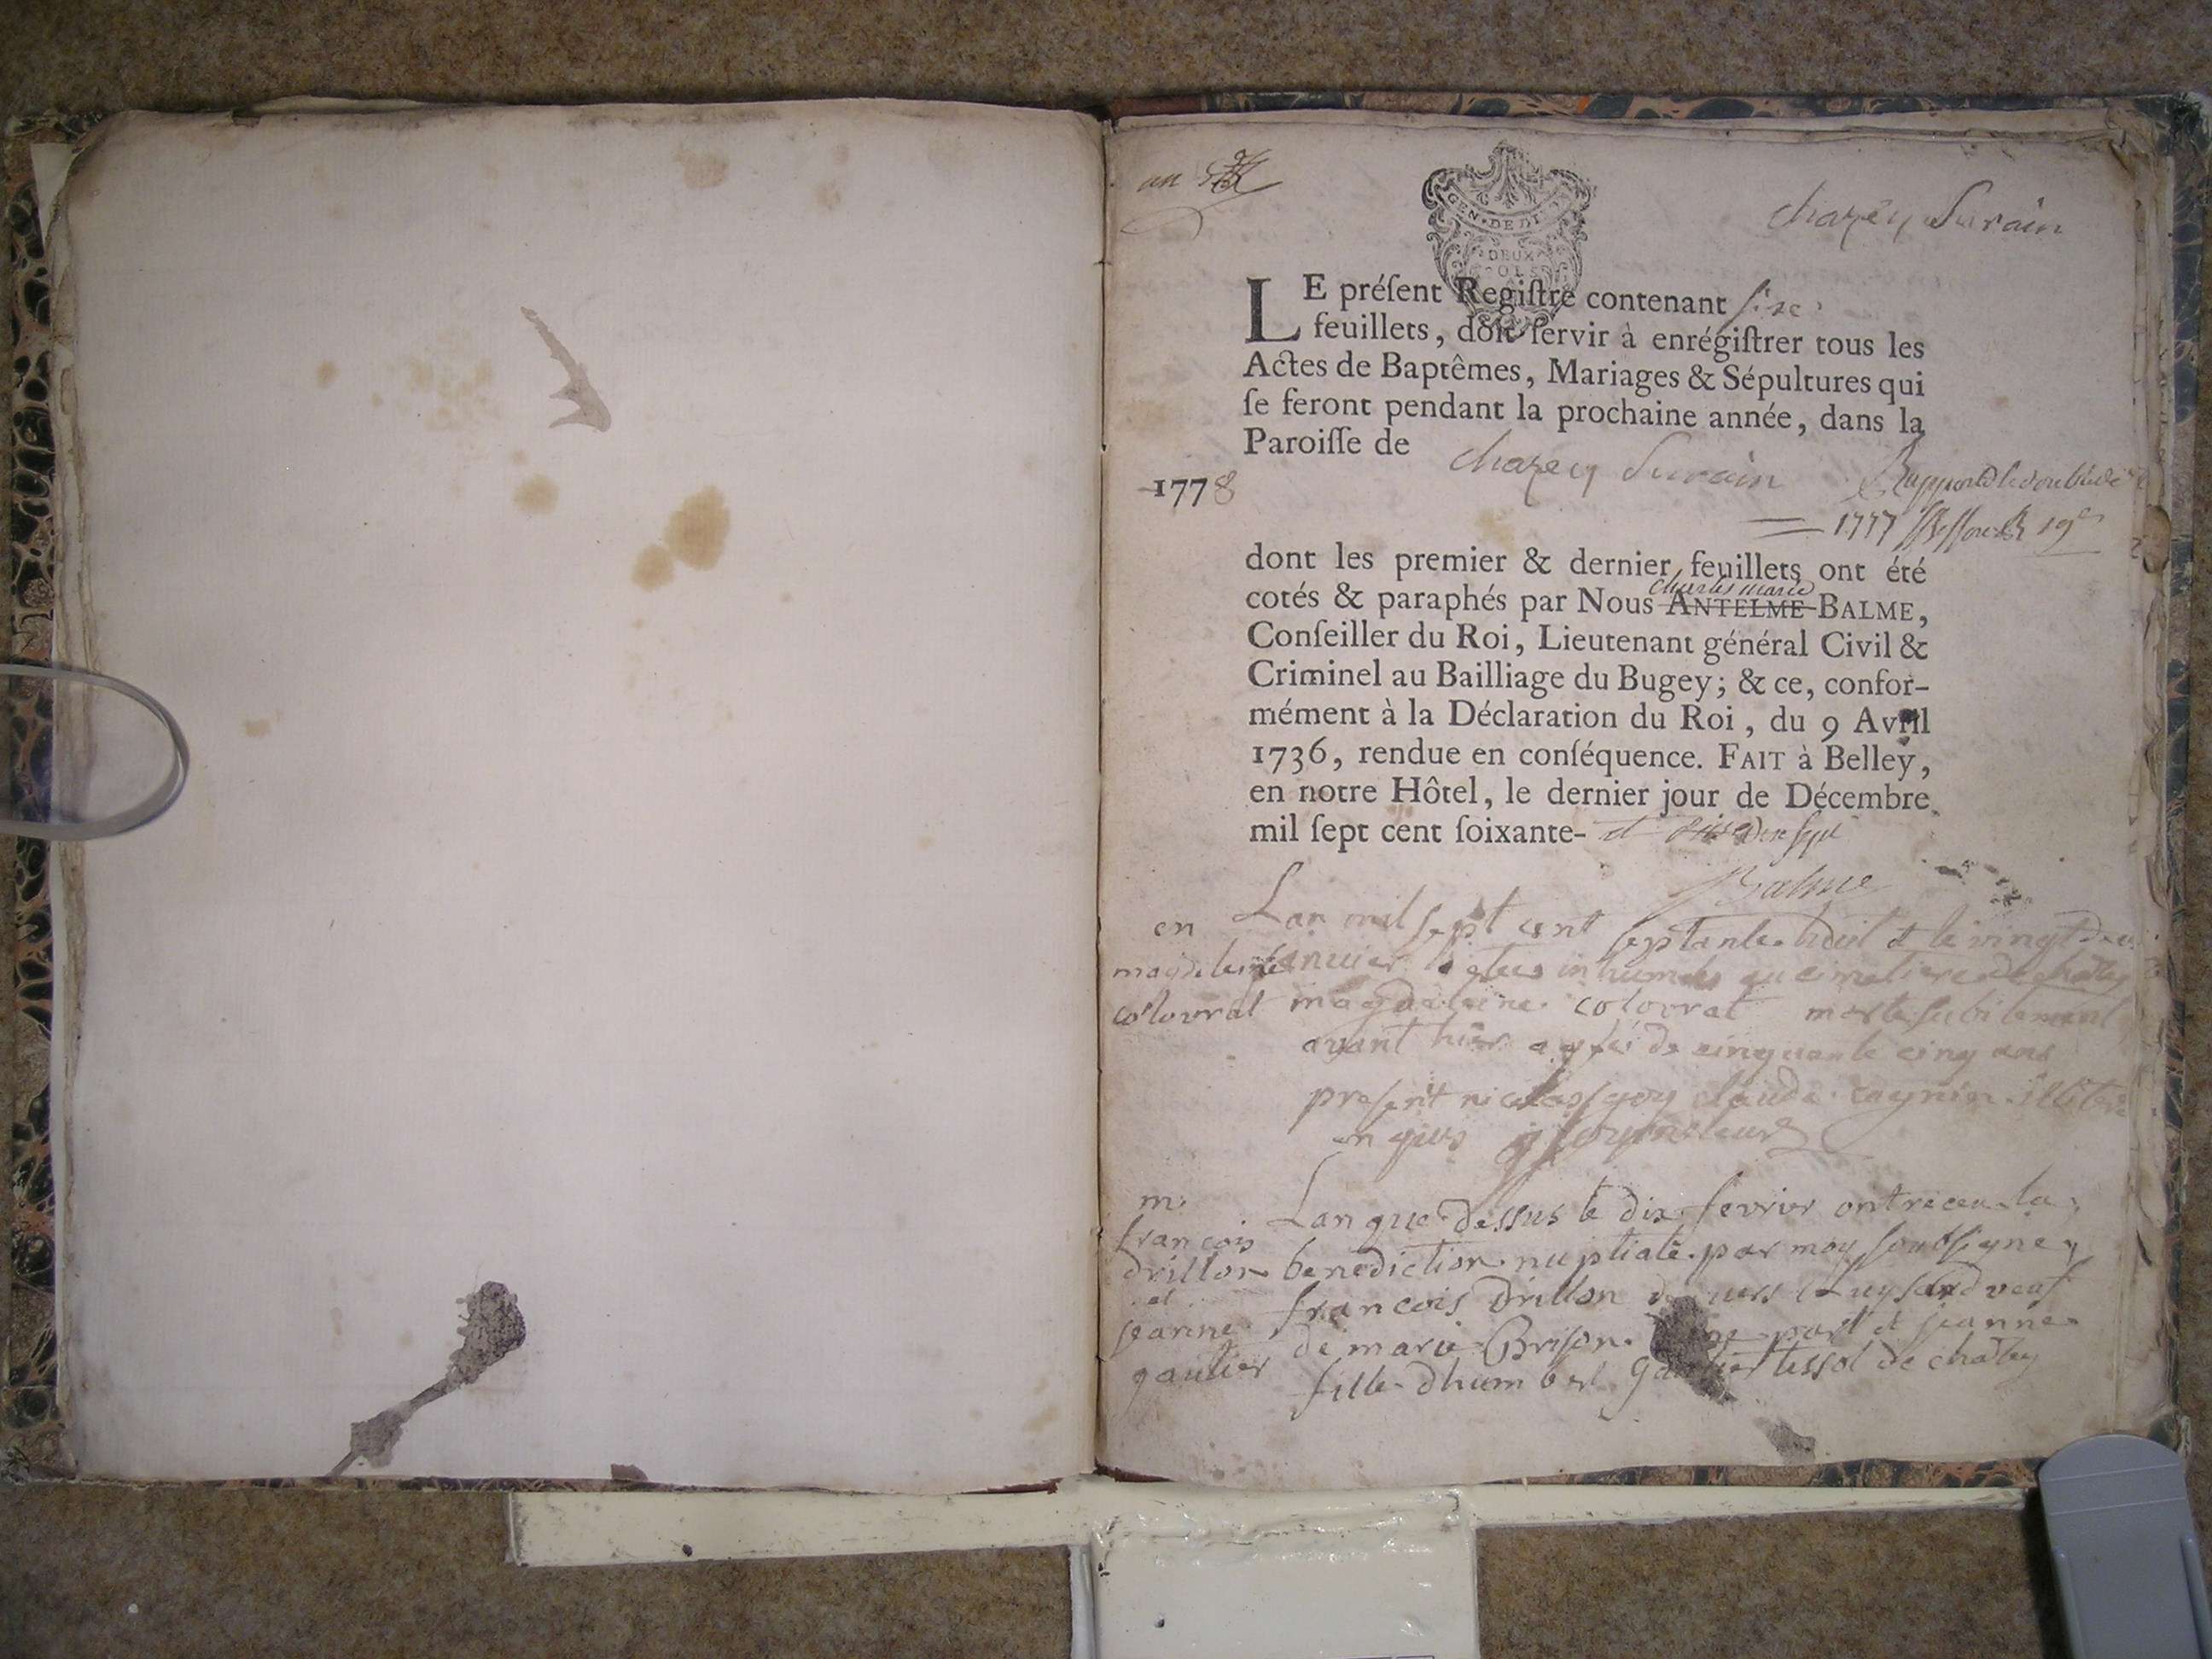 chazey Surain
GEN·DE DI
DEUX
SOLS
LE préſent Regiſtre contenant ſixe
feuillets, doit ſervir à enrégiſtrer tous les
Actes de Baptêmes, Mariages & Sépultures qui
ſe feront pendant la prochaine année, dans la
Paroiſſe de chazey Surain
1778
1777
dont les premier & dernier feuillets ont été
charles marie
cotés & paraphés par Nous ANTELME BALME,
Conſeiller du Roi, Lieutenant général Civil &
Criminel au Bailliage du Bugey; & ce, confor-
mément à la Déclaration du Roi, du 9 Avril
1736, rendue en conſéquence. FAIT à Belley,
en notre Hôtel, le dernier jour de Décembre
mil ſept cent ſoixante- et dix ſept
Balme
en
magdeleine
colovrat
Lan mil ſept cent ſeptante huit et le vingt
janvier inhumée au cimetiere de
magdeleine colovrat morte ſubitement
avant hier de cinquante cinq ans
preſent nicolas goy claude
m.
francois
drillon
et
jeanne
gautier
Lan que deſſus le dix fevrier ont receu la
benediction nuptiale par moy ſoubſigne
francois drillon veuf
de marie Briſon part et jeanne
fille dhumbert gautier teſſot de